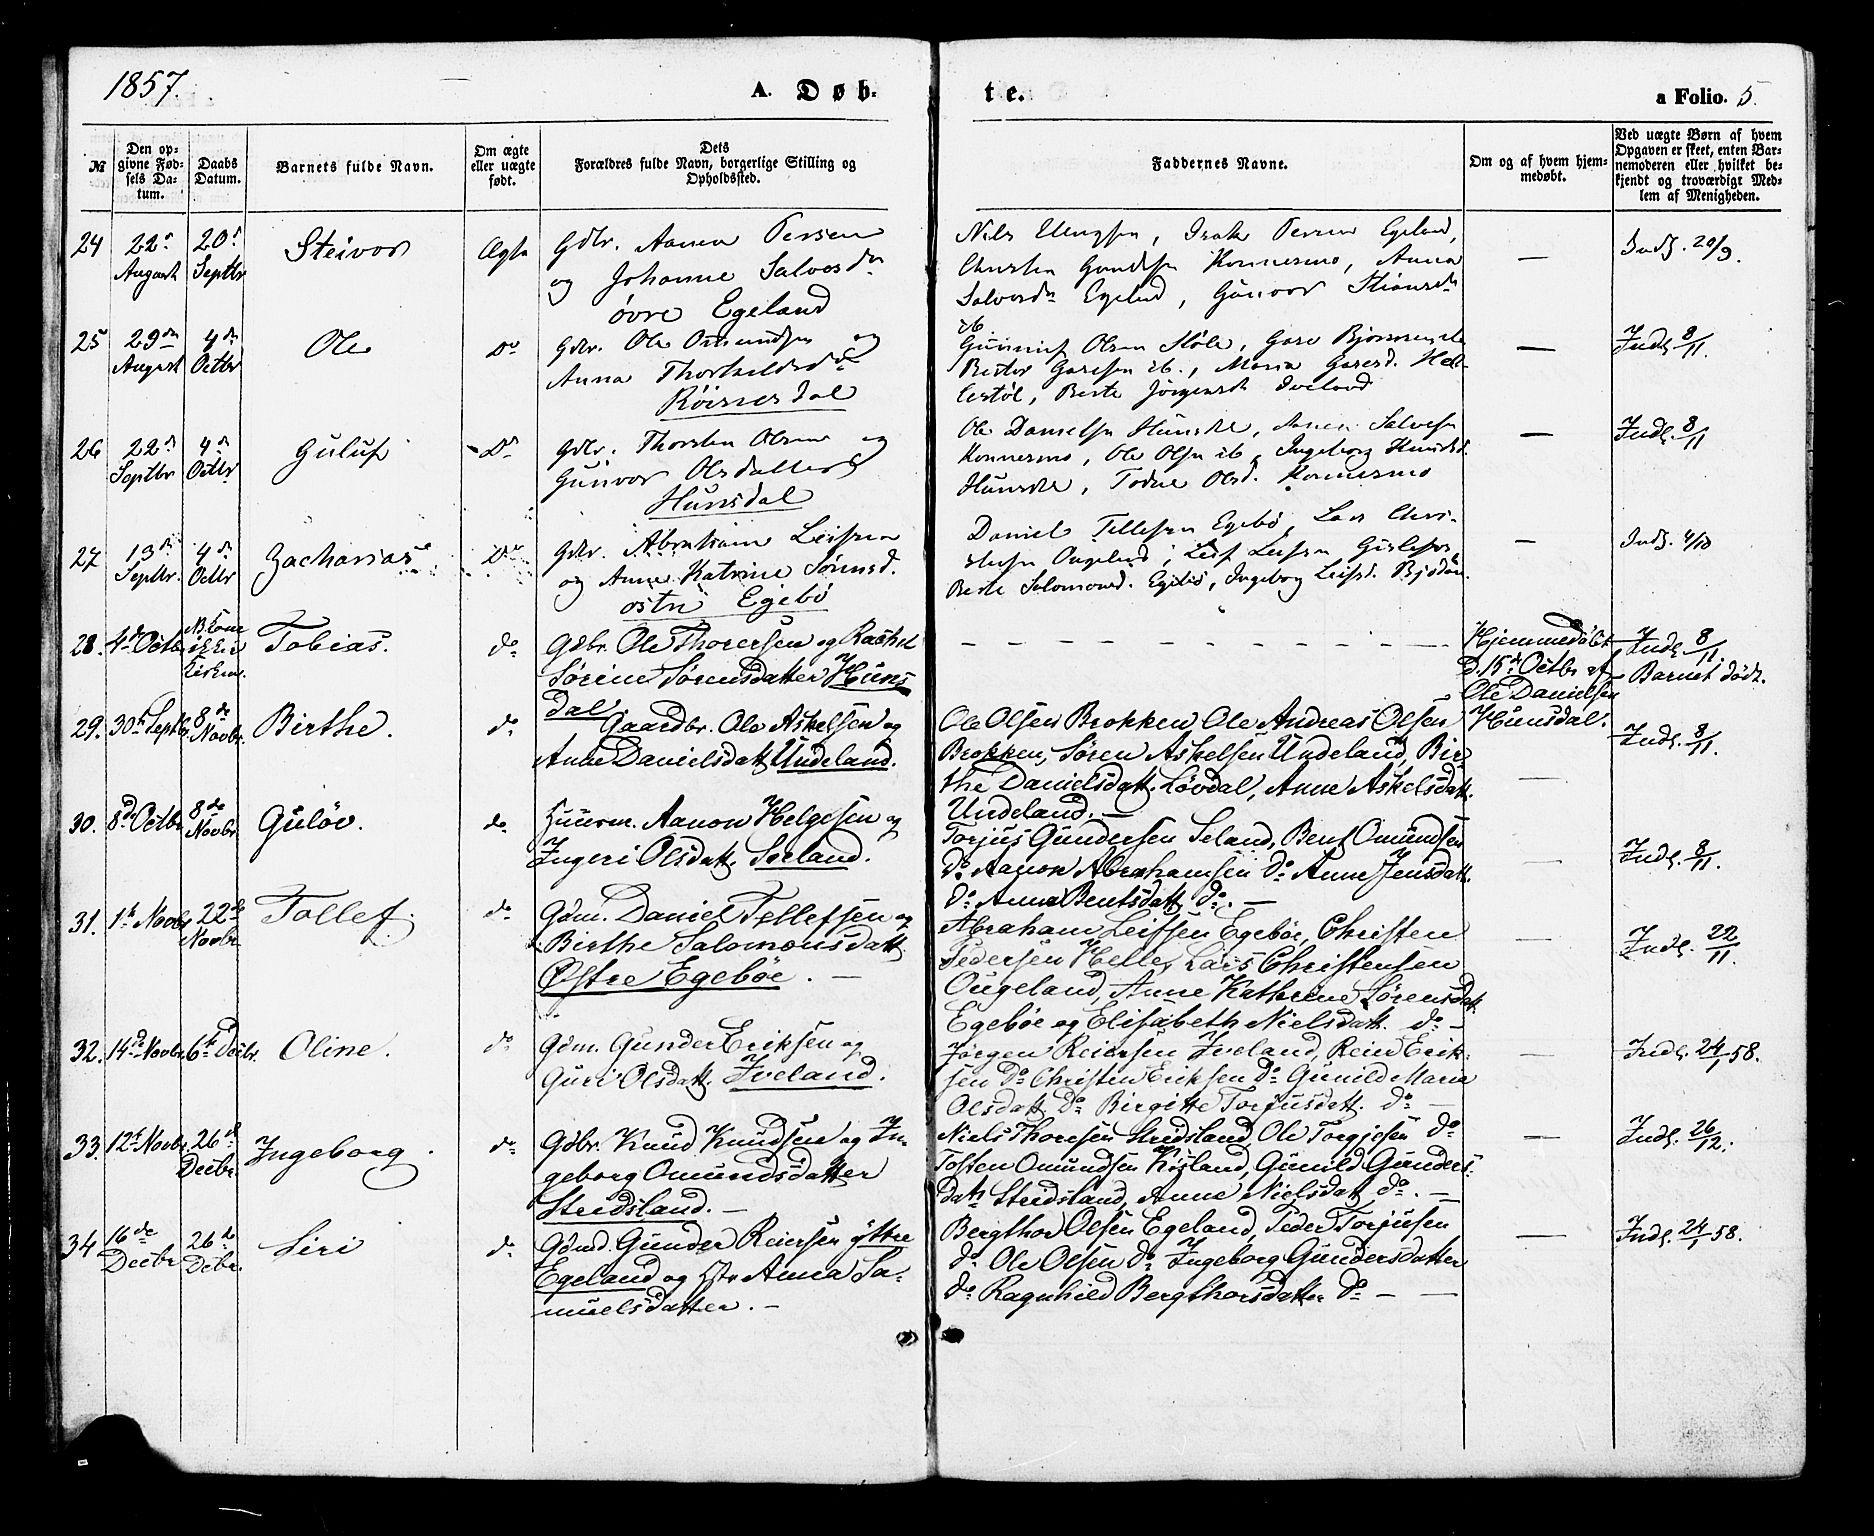 1857.
A. Døb-
te.
a Folio. 5.
№
Den op-
givne Fød-
sels Da-
tum.
Daabs
Datum.
Barnets fulde Navn.
Om ægte
eller uægte
født.
Dets
Forældres fulde Navn, borgerlige Stilling og
Opholdssted.
Faddernes Navne.
Om og af hvem hjem-
medøbt.
Ved uægte Børn af hvem
Opgaven er skeet, enten Bar-
nemoderen eller hvilket be-
kjendt og troværdigt Med-
lem af Menigheden.
24
22
August
20
Septbr
Steivor
Ægte
Gdbr. Aanen Persen
og Johanne Salvesdr
øvre Egeland
Egeland,
Konnesmo, Anna
Egelnd, Gunvor
Indf. 20/9.
25
29de
August
4de
Octbr
Ole
Do
Gdbr. Ole Omundsen og
Anna Thorkeldsdr
Röisnesdal
Olsen
Garesen ib., Maria Garesd. Hel-
Jörgensdr Iveland
Indf. 8/11.
26
22
Septbr
4de
Octbr
Guluf
Do
Gdbr. Thorsten Olsen og
Gunvor Olsdatter
Hunsdal
Ole Danielsen Hunsdl, Salvesen
Konnesmo, Ole Olsen ib, Ingeborg Knudsd.
Hunsdl, Todne Olsd. Konnesmo
Indf. 8/11
27
13de
Septbr.
4de
Octbr
Zacharias
Do
Gdbr. Abraham Leifsen
og Anne Katrine Sörensd.
östre Egebö
Daniel Tellefsen Egebö, Lars Chri-
stensen Ougeland, Leif Leifsen
Berte Salomonsd. Egebö, Ingeborg Leifsd.
Indf. 4/10
28.
4de Octbr
ikke i
Kirken.
Tobias.
do
Gdbr. Ole Thorersen og Rachel
Sørine Sørensdatter Huns
dal.
Hjemmedøbt
D. 15de Octbr af
Ole Danielsen
Hunsdal.
Indf. 8/11.
Barnet dødt.
29.
30te Septbr
8de
Novbr.
Birthe.
do
Gaardbr. Ole Askelsen og
Anne Danielsdatt. Undeland.
Ole Olsen Brokken, Ole Andreas Olsen
Brokken, Søren Askelsen Undeland, Bir-
the Danielsdatt. Løvdal, Anne Askelsdatt.
Undeland.
Indf. 8/11.
30.
8d Octbr
8de
Novbr
Guløv.
do
Huusm. Aanon Helgesen og
Ingeri Olsdatt. Seeland.
Torjus Gundersen Seland, Bent Omundsen
Do Aanon Abrahamsen Do Anne Jensdatt.
do Anne Bentsdatt. do. —
Indf. 8/11.
31.
1te Novbr
22de
Novbr
Tollef.
do
Gdm. Daniel Tellefsen og
Birthe Salomonsdatt.
Østre Egebøe. —
Abraham Leifsen Egebøe, Christen
Pedersen Helle, Lars Christensen
Ougeland, Anne Kathrine Sørensdatt.
Egebøe og Elisabeth Nielsdatt. do —
Indf. 22/11.
32.
14de Novbr.
6te Decbr.
Oline.
do
Gdm. Gunder Eriksen og
Guri Olsdatt. Iveland.
Jørgen Reiersen Iveland, Reier Erik-
sen Do Christen Eriksen Do Gunild Marie
Olsdatt. Do Birgitte Torjusdatt. do —
Indf. 24/1 58.
33.
12te Novbr
26de
Decbr.
Ingeborg.
do
Gdbr. Knud Knudsen og In-
geborg Omundsdatter
Stridsland. —
Niels Thoresen Stridsland, Ole Torgjesen do
Tosten Omundsen Røisland, Gunild Gunders-
datt. Stridsland, Anne Nielsdatt. do. —
Indf. 26/12.
34
16de
Decbr
26de
Debr.
Siri
do
Gdmd. Gunder Reiersen ÿttre
Egeland og Hstr Anna Sa-
muelsdatter. —
Bergthor Olsen Egeland, Peder Torjusen
do. Ole Olsen do Ingeborg Gundersdatter
do Ragnhild Bergthorsdatter do —
Indf. 24/1 58.